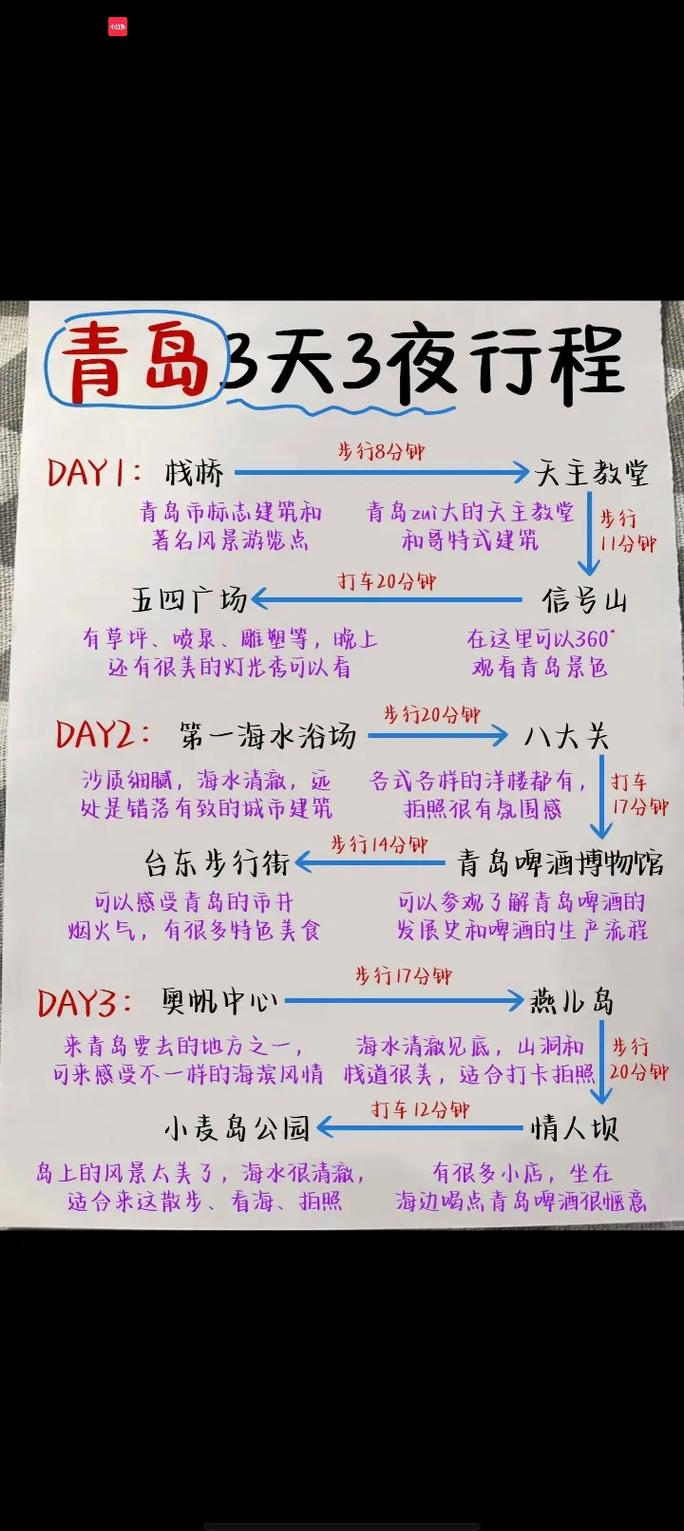 小红书
青岛3天3夜行程
DAY1：栈桥 步行8分钟 天主教堂
青岛市标志建筑和 青岛zui大的天主教堂 步行
著名风景游览点 和哥特式建筑 11分钟
五四广场 打车20分钟 信号山
有草坪、喷泉、雕塑等，晚上 在这里可以360°
还有很美的灯光秀可以看 观看青岛景色
DAY2：第一海水浴场 步行20分钟 八大关
沙质细腻，海水清澈，远 各式各样的洋楼都有， 打车
处是错落有致的城市建筑 拍照很有氛围感 17分钟
台东步行街 步行14分钟 青岛啤酒博物馆
可以感受青岛的市井 可以参观了解青岛啤酒的
烟火气，有很多特色美食 发展史和啤酒的生产流程
DAY3：奥帆中心 步行17分钟 燕儿岛
来青岛要去的地方之一， 海水清澈见底，山洞和 步行
可来感受不一样的海滨风情 栈道很美，适合打卡拍照 20分钟
小麦岛公园 打车12分钟 情人坝
岛上的风景太美了，海水很清澈， 有很多小店，坐在
适合来这散步、看海、拍照 海边喝点青岛啤酒很惬意